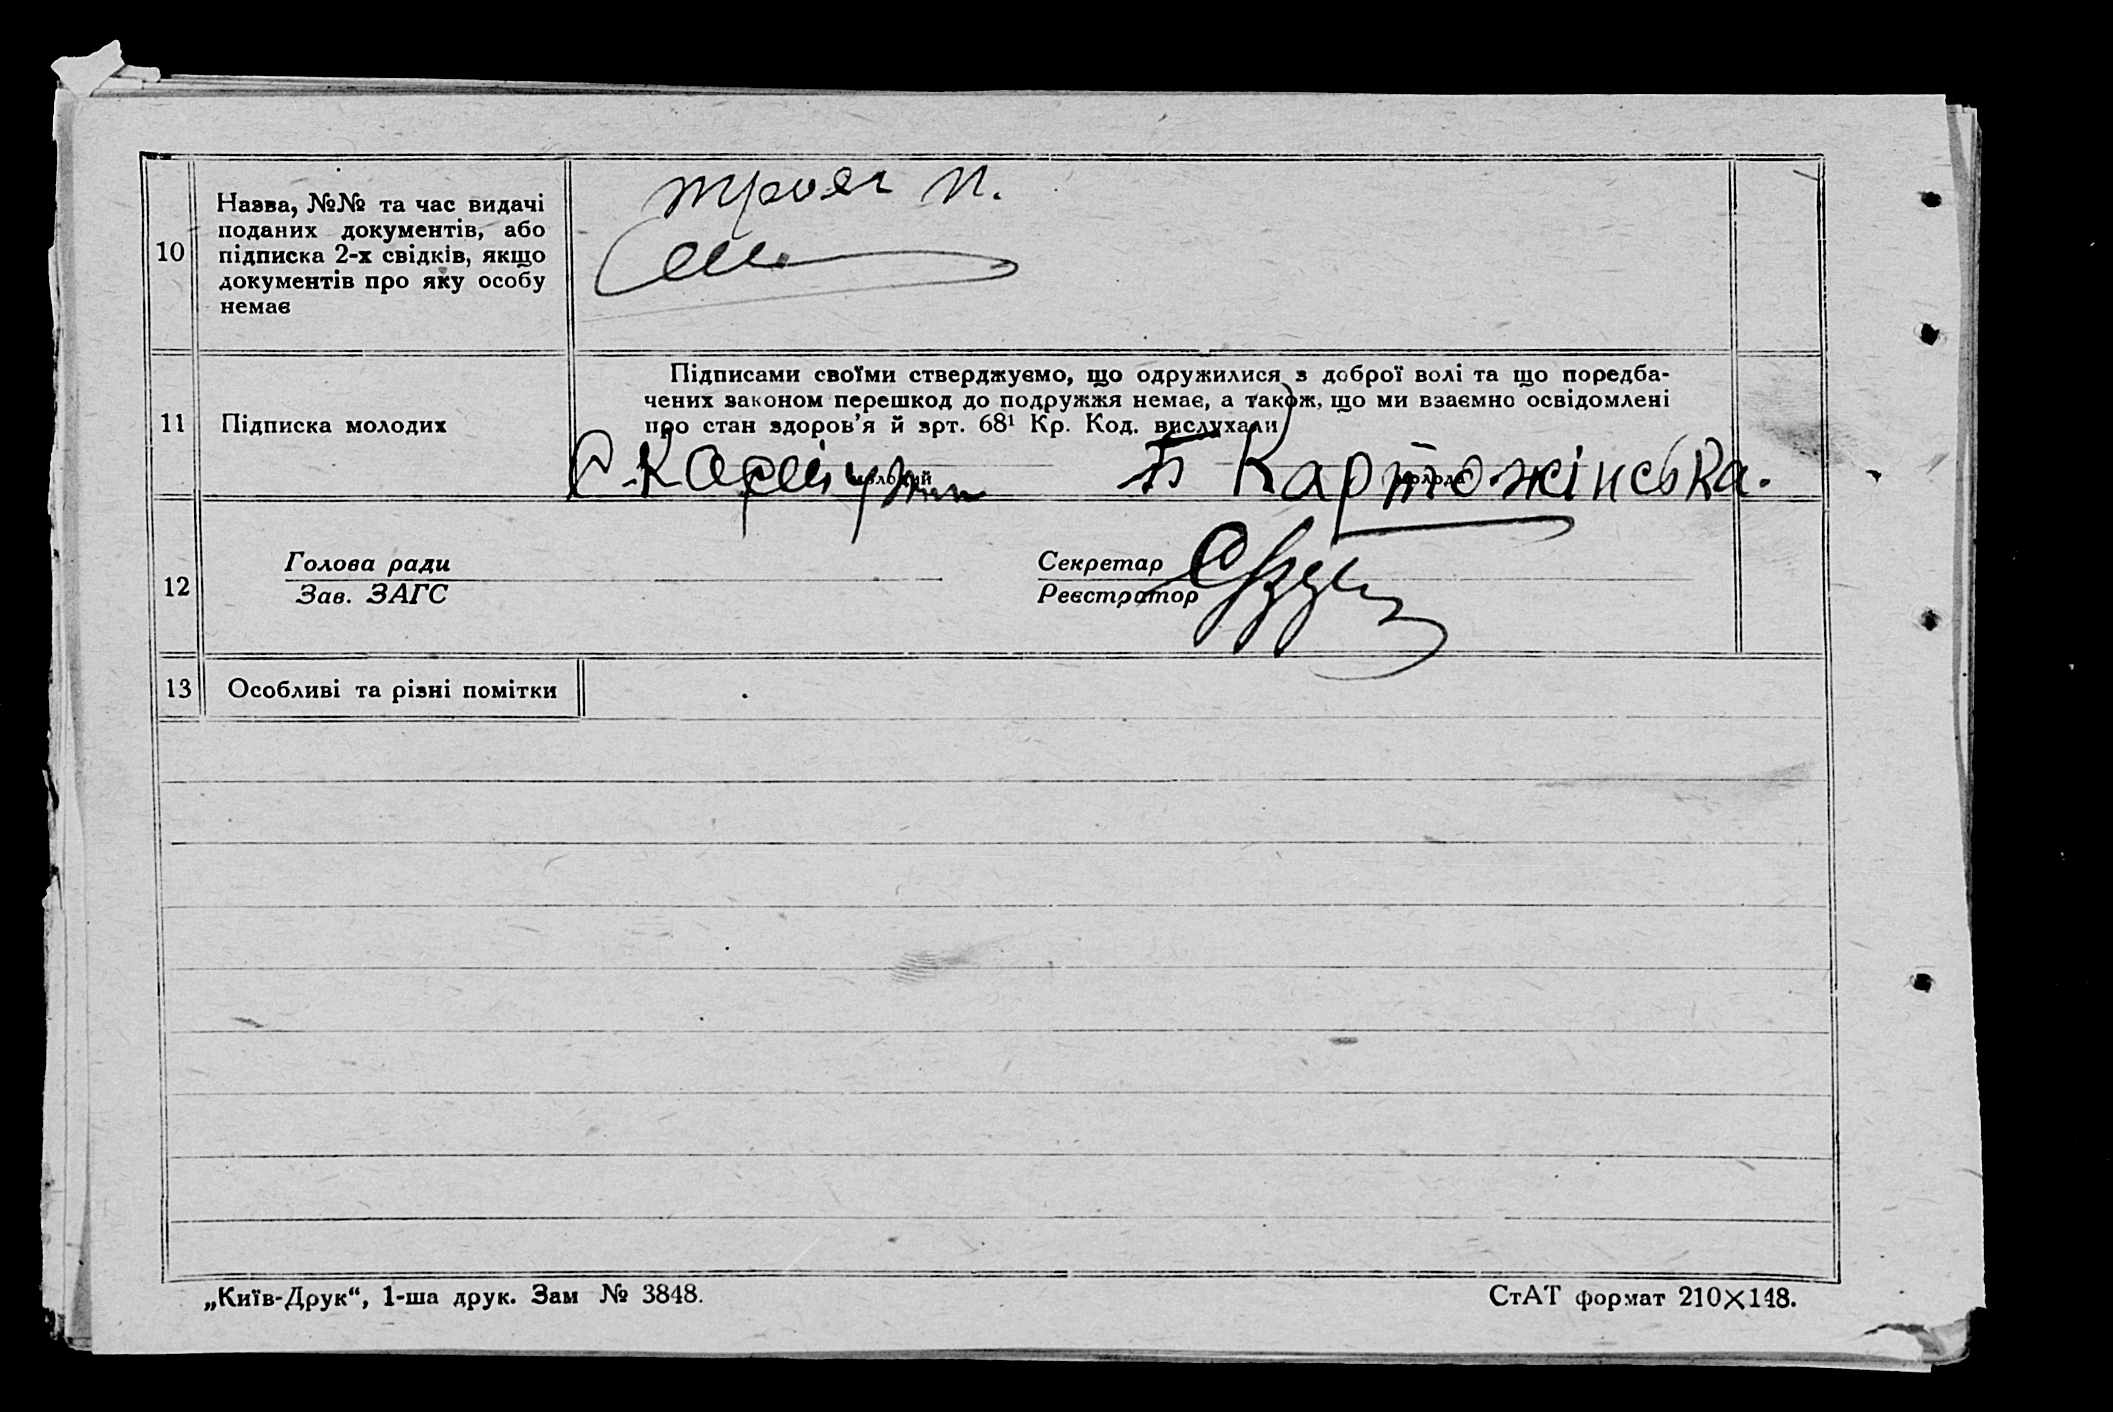 10
Назва, №№ та час видачі
поданих документів, або
підписка 2-х свідків, якщо
документів про яку особу
немає
11
Підписка молодих
Підписами своїми стверджуємо, що одружилися з доброї волі та що передба-
чених законом перешкод до подружжя немає, а також, що ми взаємно освідомлені
про стан здоров'я й арт. 68¹ Кр. Код. вислухали
молодий
молода
Картожінська.
12
Голова ради
Зав. ЗАГС
Секретар
Реєстратор
13
Особливі та різні помітки
„Київ-Друк“, 1-ша друк. Зам № 3848.
СтАТ формат 210×148.